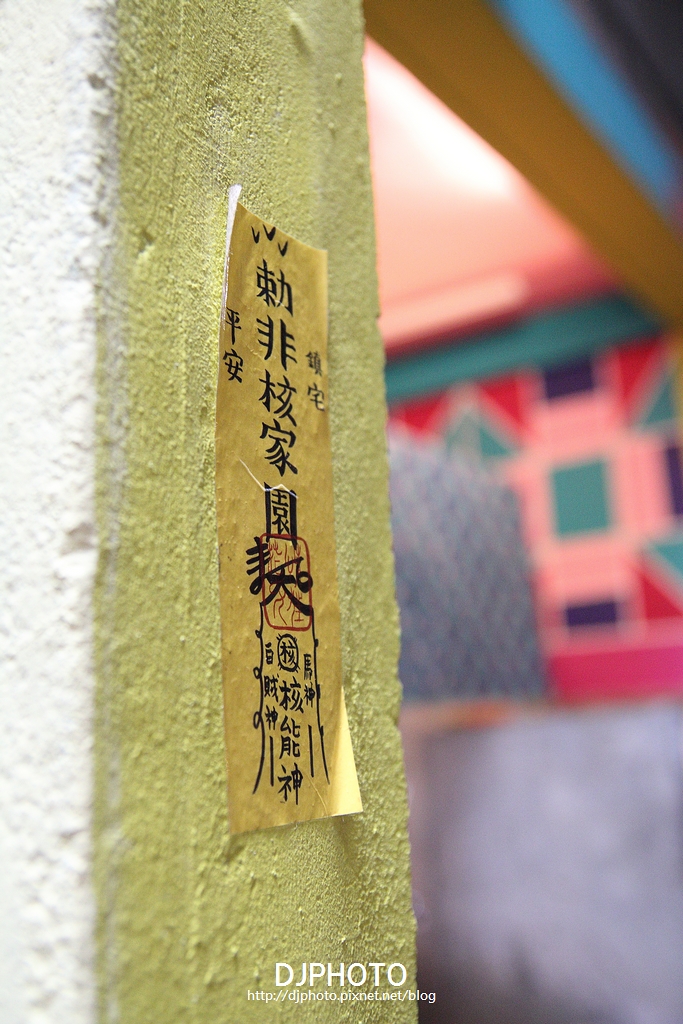 勅非核家園
鎮宅
平安
核
核能神
馬神
自賊神
DJPHOTO
http://djphoto.pixnet.net/blog